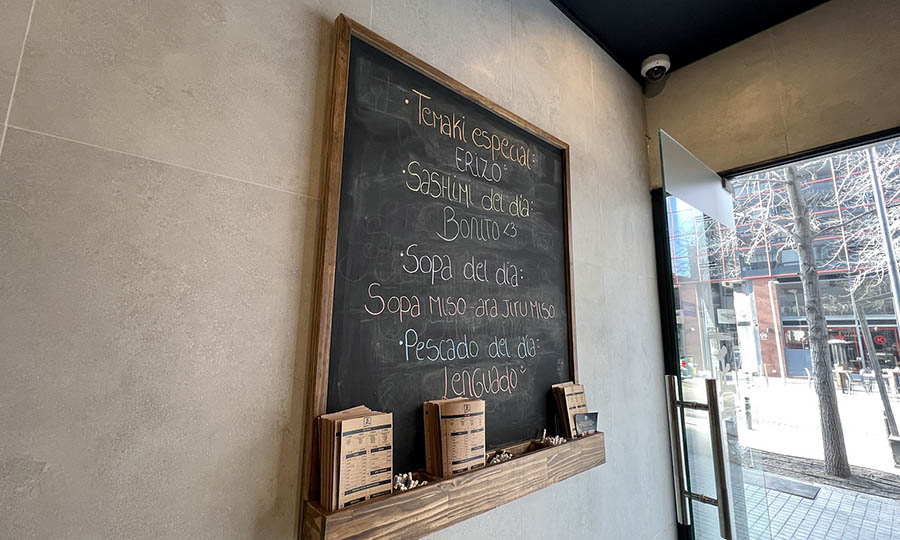 · Temaki especial:
ERIZO
· Sashimi del día:
Bonito <3
· Sopa del día:
Sopa miso-ara Jiru miso
· Pescado del día:
lenguado